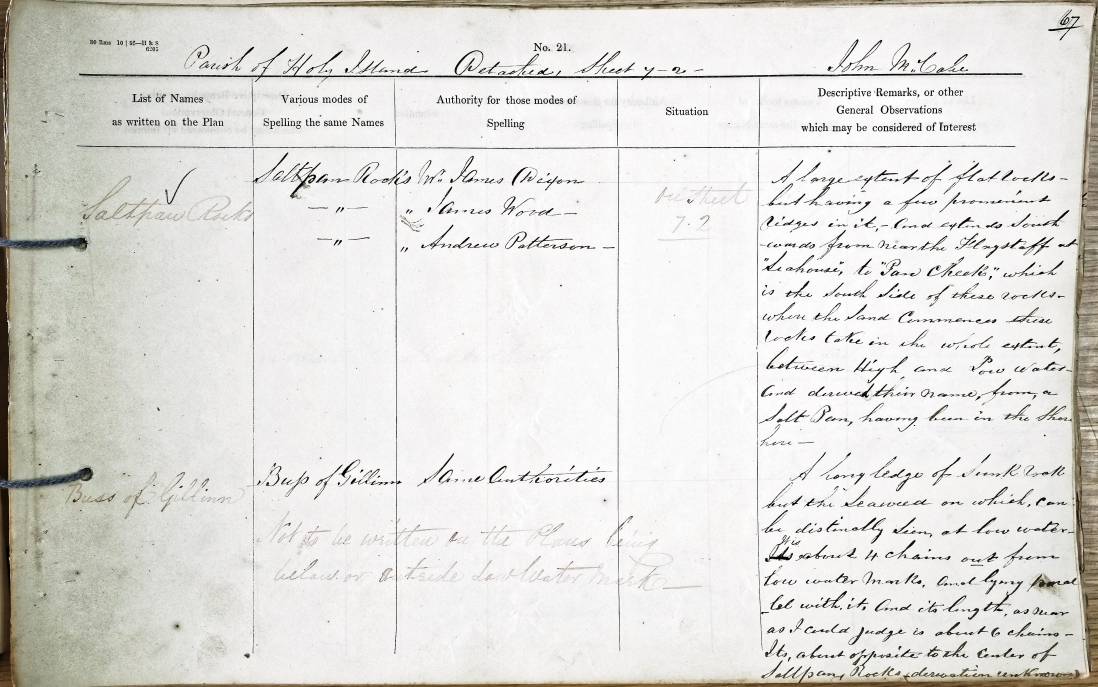 67
No. 21.
Parish of Holy Island Detached, Sheet 7-2-
John McCabe
List of Names
as written on the Plan
Various modes of
Spelling the same Names
Authority for those modes of
Spelling
Situation
Descriptive Remarks, or other
General Observations
which may be considered of Interest
Saltpan Rocks
Saltpan Rocks
— „ —
— „ —
Mr. James Dixon
„ James Wood —
„ Andrew Patterson —
On Sheet
7.2
A large extent of flat rocks -
but having a few prominent
ridges in it, - and extends South
wards from near the Flagstaff at
"Seahouse", to "Pan Cheek", which
is the South Side of these rocks -
where the Sand Commences these
rocks take in the whole extent,
between High and Low Water -
and derived their name, from, a
Salt Pan, having been in the Shore
here —
Buss of Gillinn
Buss of Gillinn
Same Authorities
Not to be written on the Plans being
below or outside Low Water Mark —
A long ledge of Sunk rock
but the Seaweed on which, can
be distinctly Seen, at low water -
It is about 4 chains out from
low water Marks, and lying paral
-lel with, it, and its length, as near
as I could judge is about 6 chains -
Its, about opposite to the Center of
Saltpan, Rocks, derivation unknown